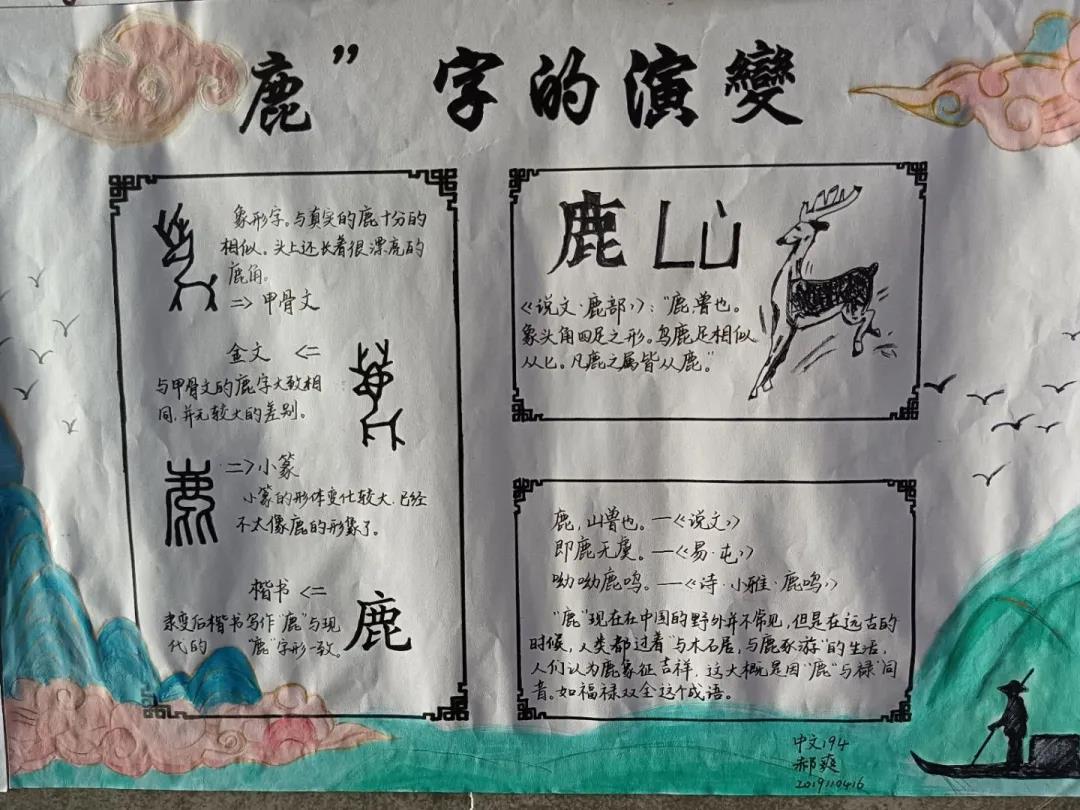 鹿” 字的演變
象形字。与真实的鹿十分的
相似。头上还长着很漂亮的
鹿角。
=> 甲骨文
金文 <=
与甲骨文的鹿字大致相
同,并无较大的差别。
=> 小篆
小篆的形体变化较大,已经
不太像鹿的形象了。
楷书 <=
隶变后楷书写作“鹿”与现
代的 “鹿”字形一致。
鹿
鹿 Lù
《说文·鹿部》:“鹿,兽也。
象头角四足之形。鸟鹿足相似
从匕。凡鹿之属皆从鹿。”
鹿,山兽也。—《说文》
即鹿无虞。—《易·屯》
呦呦鹿鸣。—《诗·小雅·鹿鸣》
“鹿”现在在中国的野外并不常见,但是在远古的
时候,人类都过着“与木石居,与鹿豕游”的生活,
人们认为鹿象征吉祥,这大概是因“鹿”与“禄”同
音。如福禄双全这个成语。
中文194
郝爽
2019110416